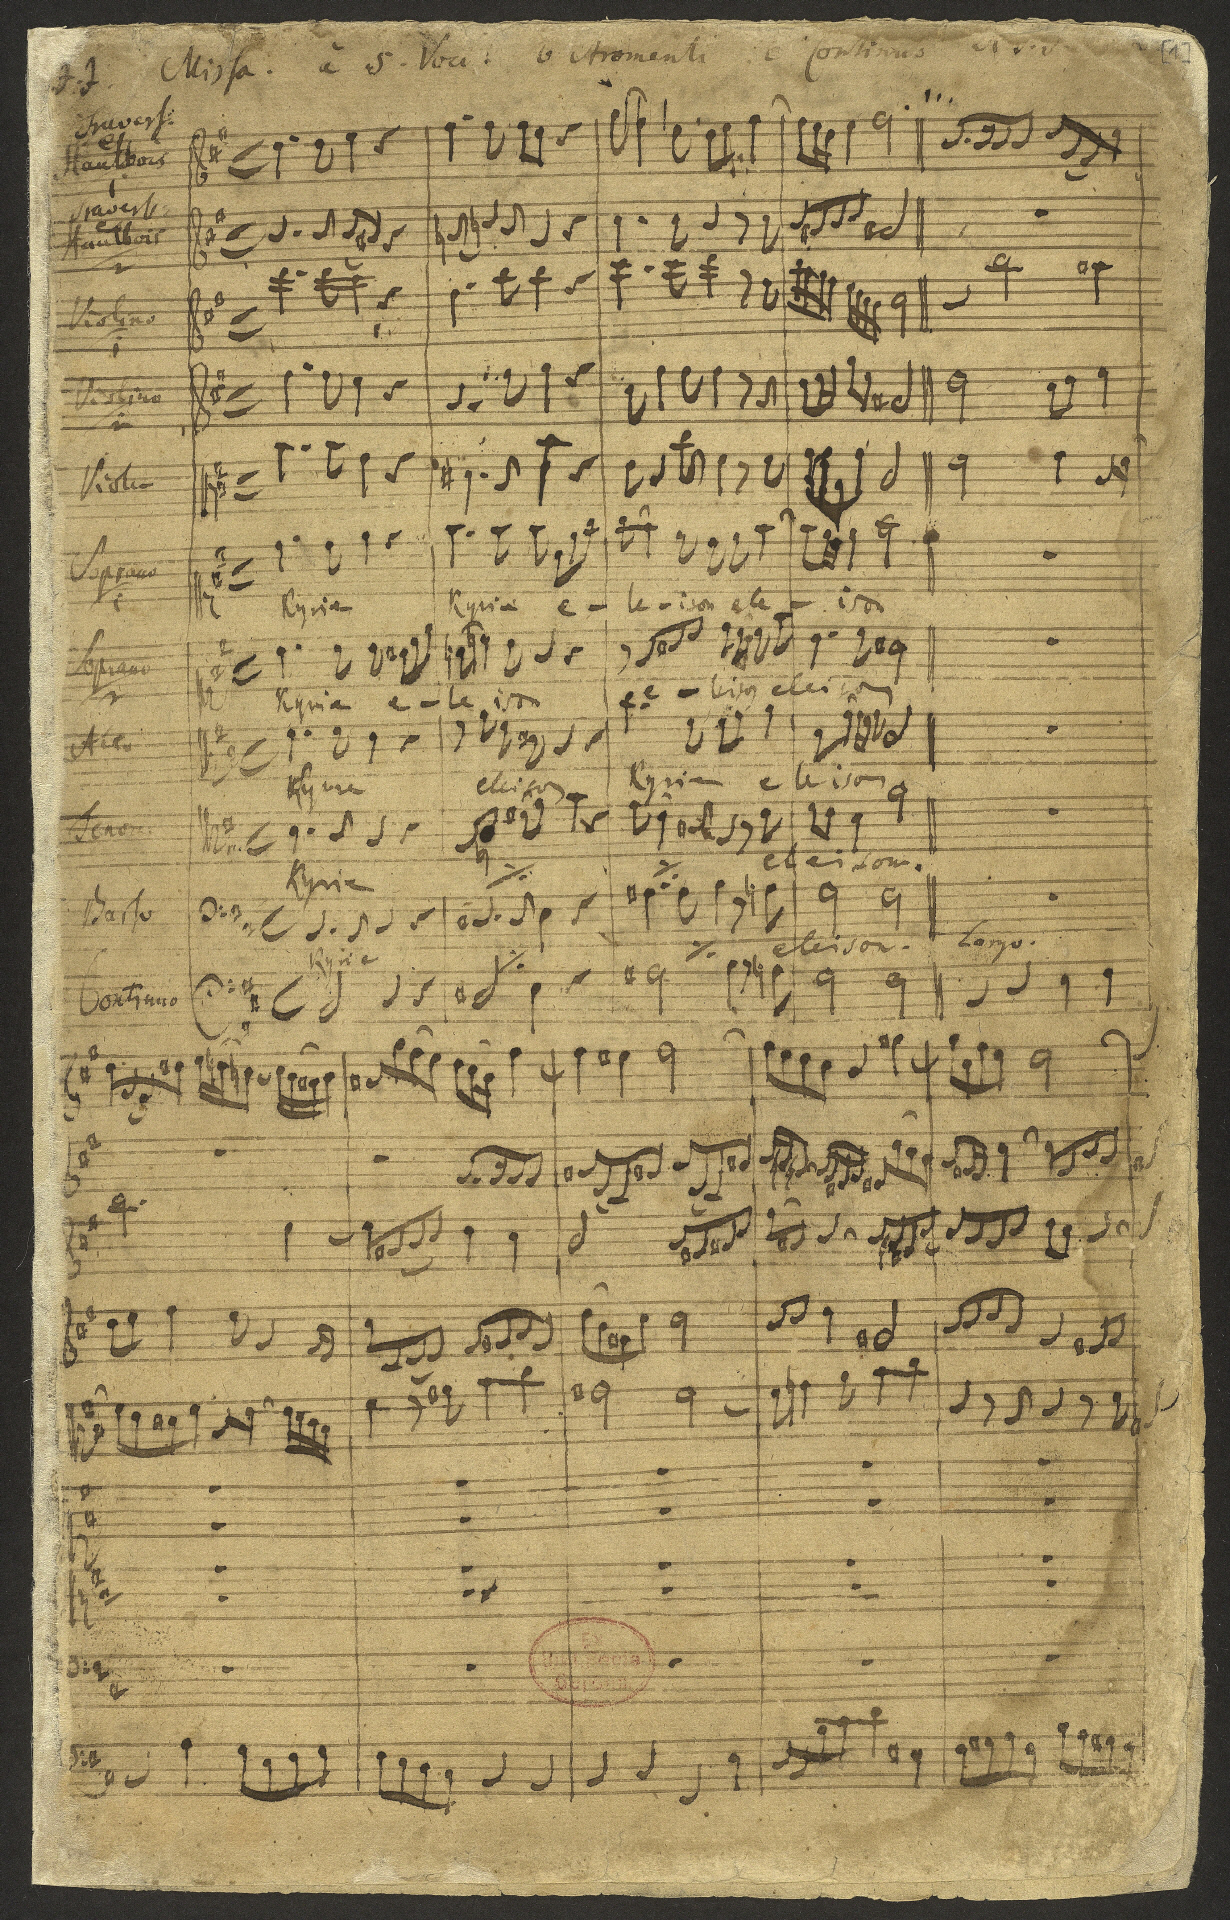 J. J. Missa. à 5. Voci. 6 Stromenti e Continuo [1]
Travers:
et
Hautbois
1
Travers:
e
Hautbois
2
Violino
1
Violino
2
Viola
Soprano
1
Kyrie Kyrie e - le - ison ele - ison
Soprano
2
Kyrie e - le ison e - leison eleison
Alto
Kyrie eleison Kyrie eleison
Tenor.
Kyrie eleison.
Basso
Kyrie eleison. Largo.
Continuo